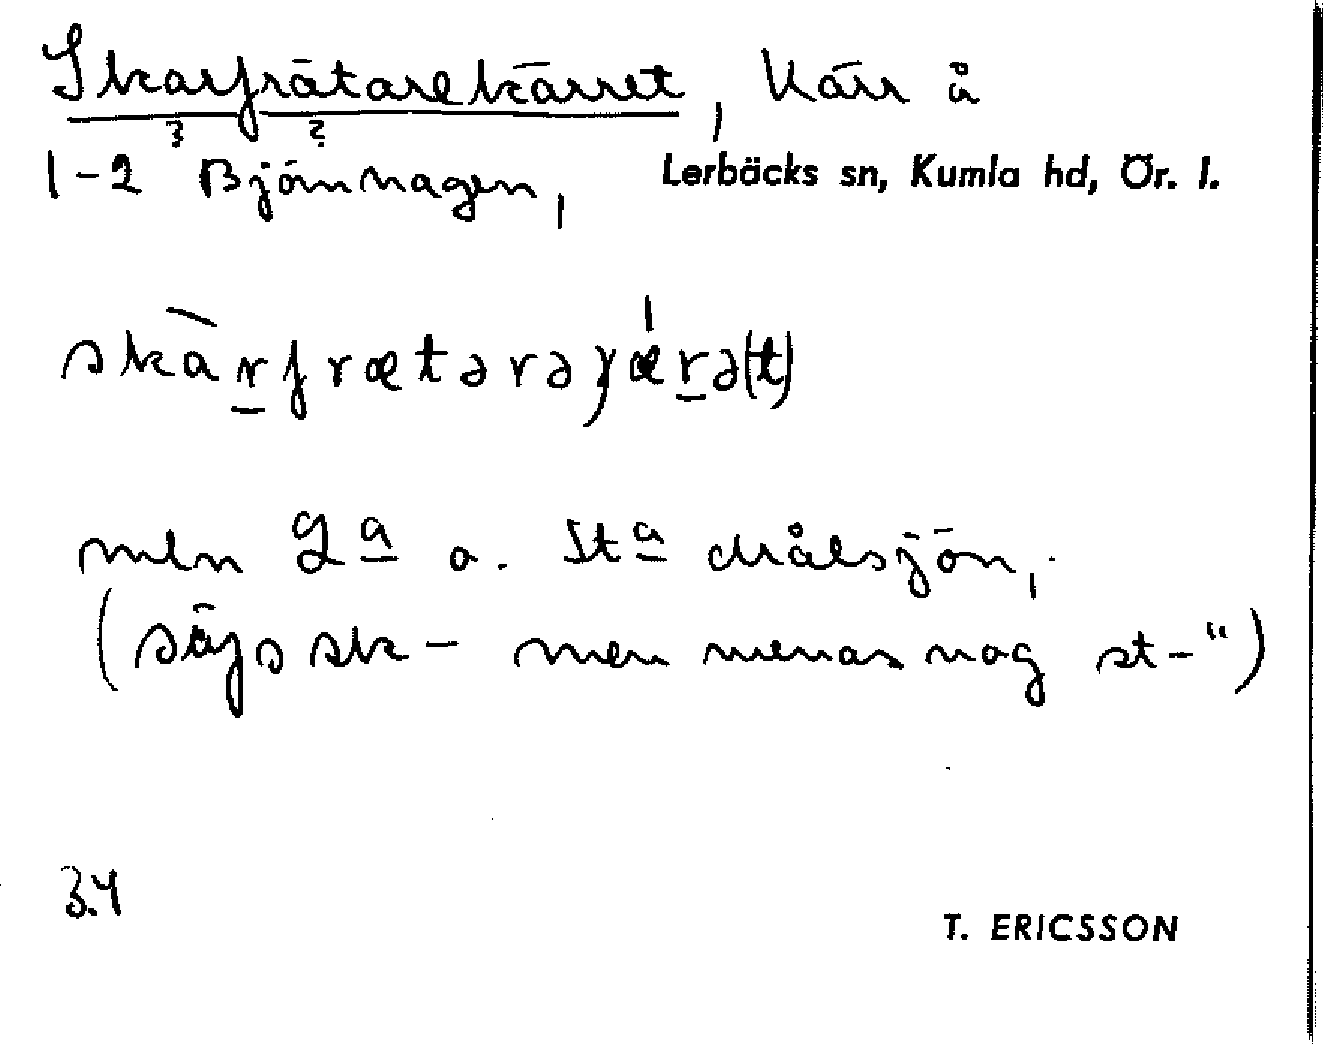 Skarfrätarekärret, Kärr å
? ?
1-2 Björnhagen, Lerbäcks sn, Kumla hd, Ör. l.
skàrfrætərəɣǽrə(t)
mln La o. Sta målsjön,
(säjs sk- men menas nog st-")
3.4
T. ERICSSON